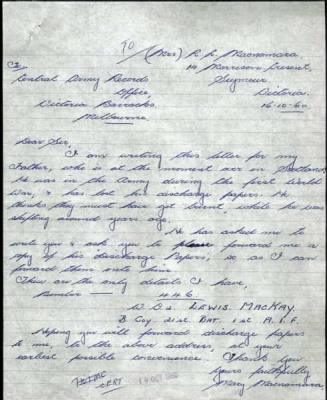 70
(Mrs) R. L. Macnamara
14 Morrison Crescent,
Seymour,
Victoria.
16-10-60.
Central Army Records
Office,
Victoria Barracks,
Melbourne.
Dear Sir,
I am writing this letter for my
Father, who is at the moment over in Scotland
He was in the Army during the first World
War, & has lost his discharge papers. He
thinks they must have got burnt while he was
shifting around years ago.
He has asked me to
write you & ask you to please forward me a
copy of his Discharge Papers, so as I can
forward them onto him
These are the only details I have,
Number 446.
LEWIS MACKAY
B Coy 21st. BAT. 1st A.I.F.
Hoping you will forward discharge papers
to me, to the above address, at your
earliest possible convenience. Thank you
Yours faithfully
Mary Macnamara
CERT
19 OCT